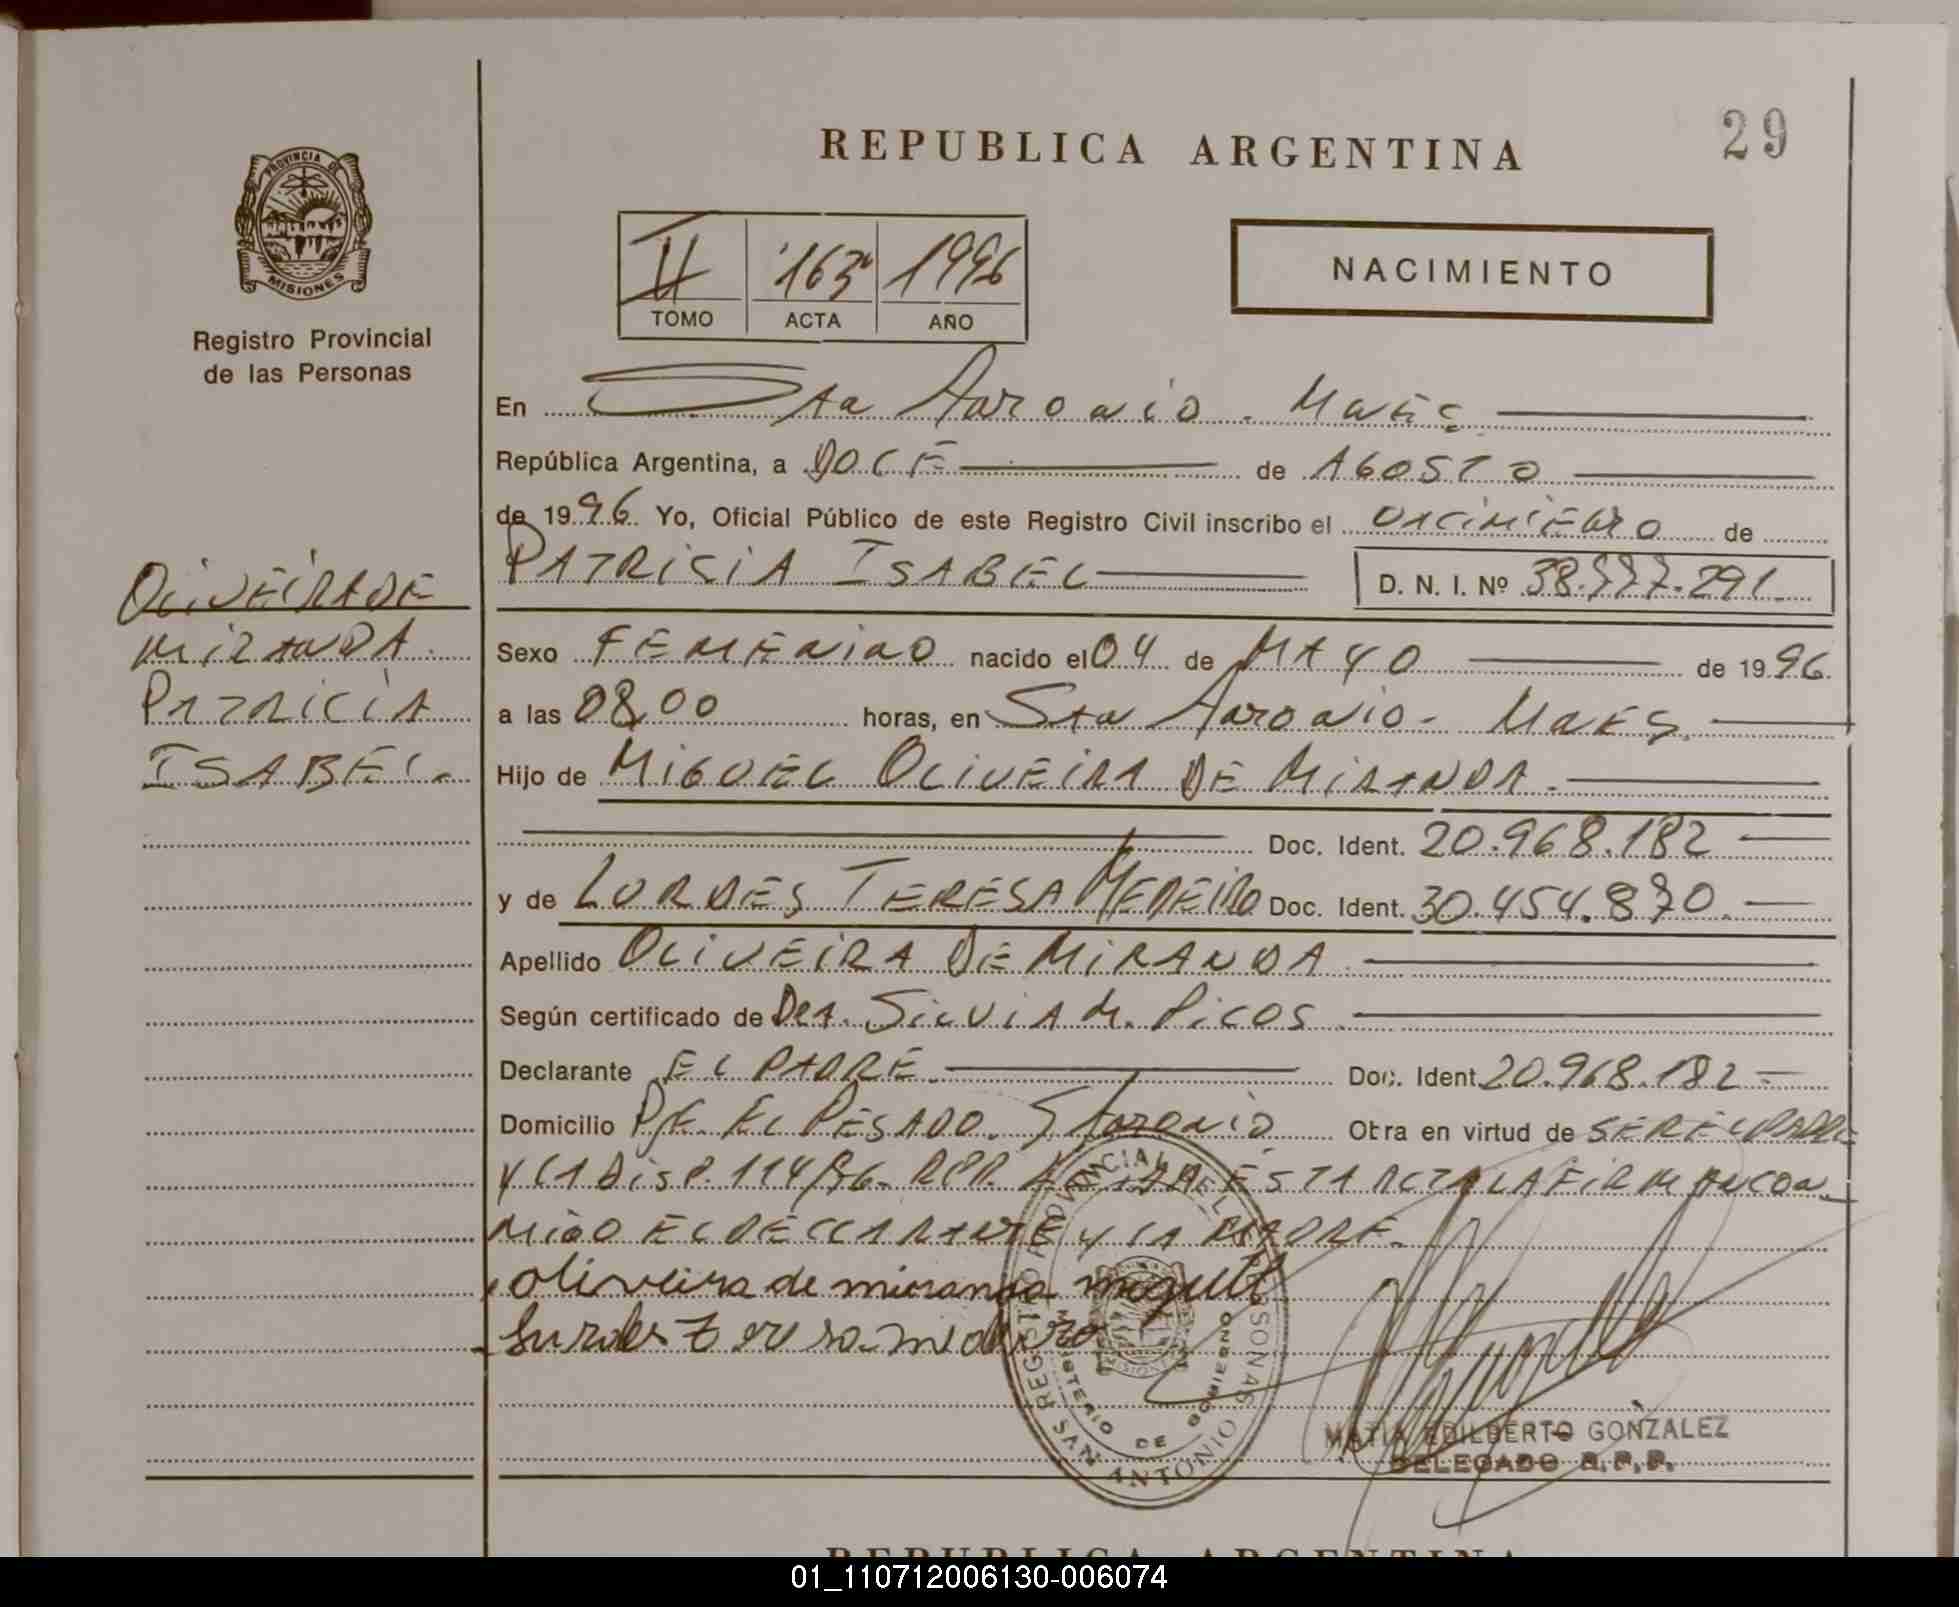 REPUBLICA ARGENTINA
29
PROVINCIA DE
MISIONES
Registro Provincial
de las Personas
II 163 1996
TOMO ACTA AÑO
NACIMIENTO
En San Antonio - Mnes
República Argentina, a DOCE de AGOSTO
de 1996 Yo, Oficial Público de este Registro Civil inscribo el nacimiento de
PATRICIA ISABEL D. N. I. Nº 38.777.291
OLIVEIRA DE
MIRANDA
PATRICIA
ISABEL.
Sexo FEMENINO nacido el 04 de MAYO de 1996
a las 08,00 horas, en San Antonio - Mnes
Hijo de MIGUEL OLIVEIRA DE MIRANDA
Doc. Ident. 20.968.182
y de LURDES TERESA MEDEIRO Doc. Ident. 30.454.870
Apellido OLIVEIRA DE MIRANDA
Según certificado de Dra. SILVIA M. PICOS
Declarante EL PADRE Doc. Ident 20.968.182
Domicilio PJE. EL PESADO. S Antonio Obra en virtud de SER EL PADRE
Y LA DISP. 114/96 - RPP. ESTA ACTA LA FIRMAN CON
MIGO EL DECLARANTE Y LA MADRE.
oliveira de miranda miguel
Lurdes Teresa medeiro
REGISTRO PROVINCIAL DE LAS PERSONAS
MINISTERIO DE GOBIERNO
MISIONES
SAN ANTONIO
MATIA EDILBERTO GONZALEZ
DELEGADO R.P.P.
REPUBLICA ARGENTINA
01_110712006130-006074